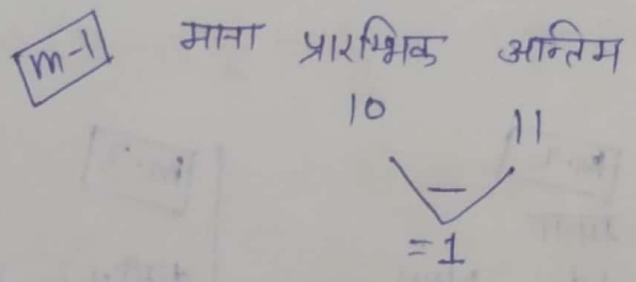 m-1 माना प्रारम्भिक अन्तिम
10 11
-
=1